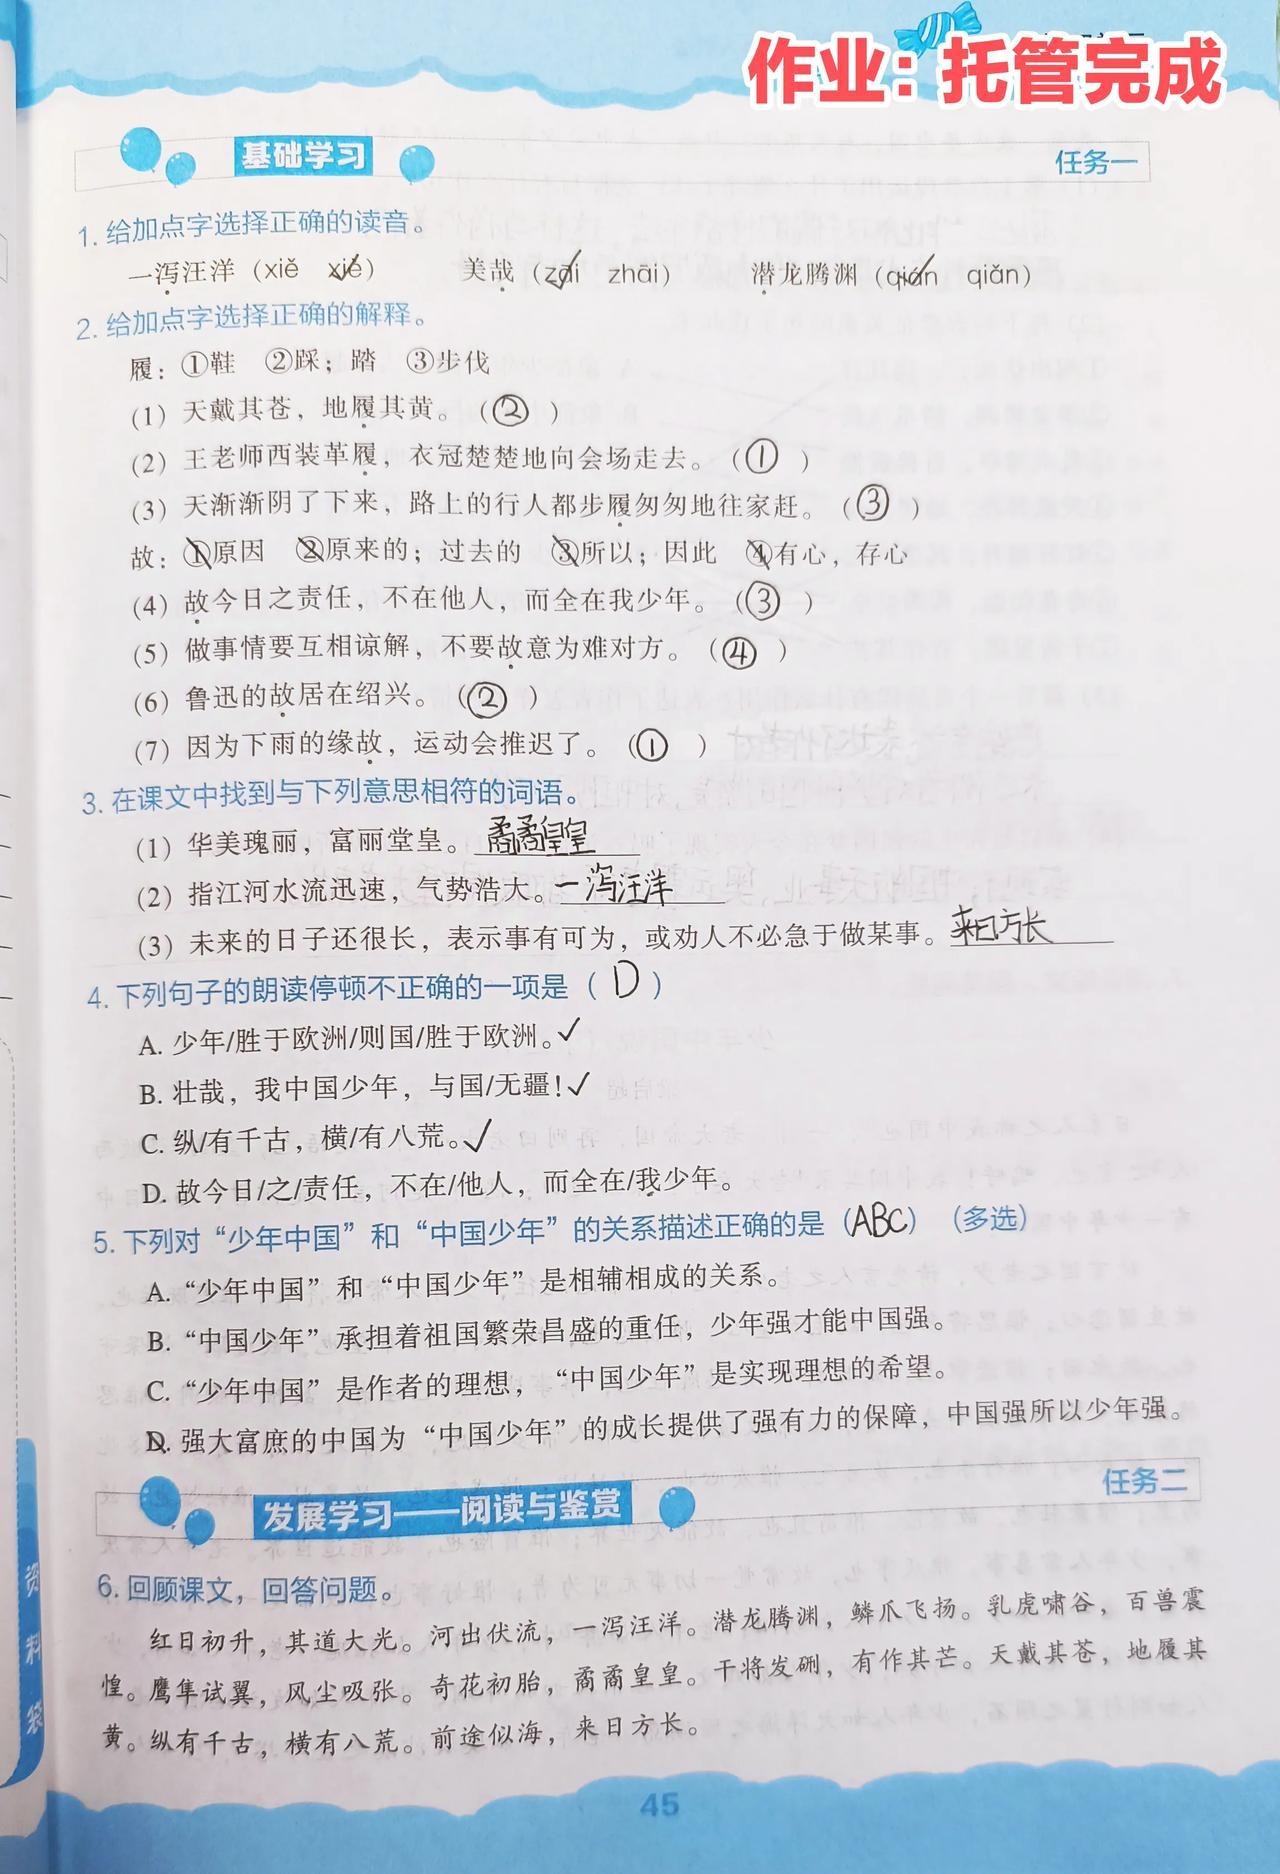 作业：托管完成
基础学习
任务一
1. 给加点字选择正确的读音。
一泻汪洋（xiě xiè） 美哉（zāi zhāi） 潜龙腾渊（qián qiǎn）
2. 给加点字选择正确的解释。
履：①鞋 ②踩；踏 ③步伐
(1) 天戴其苍，地履其黄。（②）
(2) 王老师西装革履，衣冠楚楚地向会场走去。（①）
(3) 天渐渐阴了下来，路上的行人都步履匆匆地往家赶。（③）
故：①原因 ②原来的；过去的 ③所以；因此 ④有心，存心
(4) 故今日之责任，不在他人，而全在我少年。（③）
(5) 做事情要互相谅解，不要故意为难对方。（④）
(6) 鲁迅的故居在绍兴。（②）
(7) 因为下雨的缘故，运动会推迟了。（①）
3. 在课文中找到与下列意思相符的词语。
(1) 华美瑰丽，富丽堂皇。矞矞皇皇
(2) 指江河水流迅速，气势浩大。一泻汪洋
(3) 未来的日子还很长，表示事有可为，或劝人不必急于做某事。来日方长
4. 下列句子的朗读停顿不正确的一项是（D）
A. 少年/胜于欧洲/则国/胜于欧洲。✓
B. 壮哉，我中国少年，与国/无疆！✓
C. 纵/有千古，横/有八荒。✓
D. 故今日/之/责任，不在/他人，而全在/我少年。
5. 下列对“少年中国”和“中国少年”的关系描述正确的是（ABC）（多选）
A. “少年中国”和“中国少年”是相辅相成的关系。
B. “中国少年”承担着祖国繁荣昌盛的重任，少年强才能中国强。
C. “少年中国”是作者的理想，“中国少年”是实现理想的希望。
D. 强大富庶的中国为“中国少年”的成长提供了强有力的保障，中国强所以少年强。
发展学习——阅读与鉴赏
任务二
6. 回顾课文，回答问题。
红日初升，其道大光。河出伏流，一泻汪洋。潜龙腾渊，鳞爪飞扬。乳虎啸谷，百兽震
惶。鹰隼试翼，风尘吸张。奇花初胎，矞矞皇皇。干将发硎，有作其芒。天戴其苍，地履其
黄。纵有千古，横有八荒。前途似海，来日方长。
资料袋
45